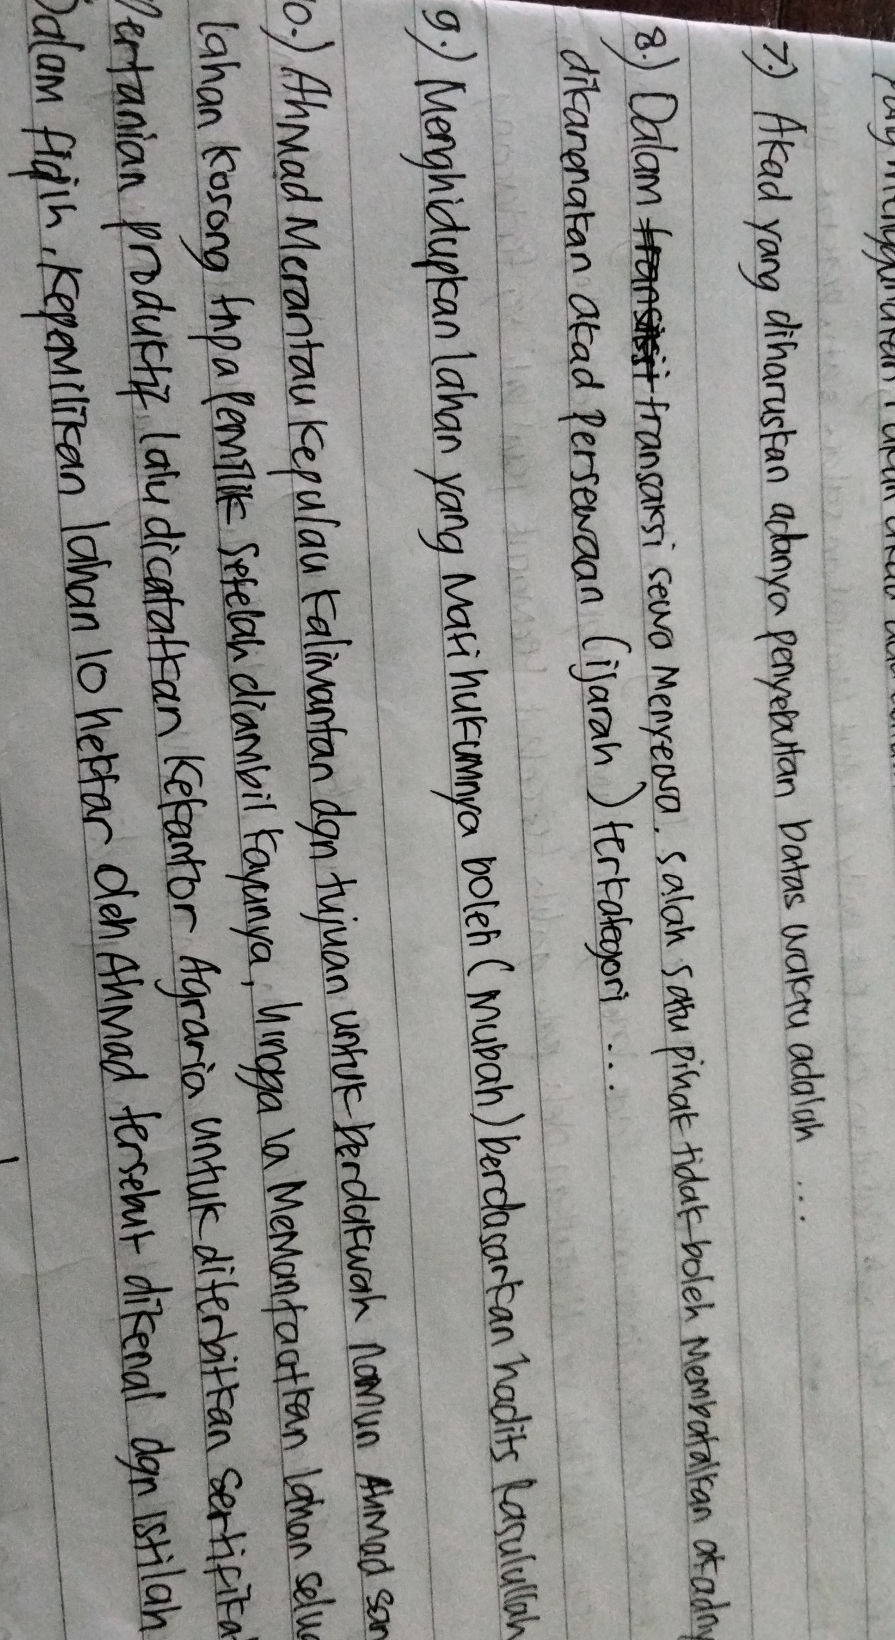 7.) Akad yang diharuskan adanya penyebutan batas waktu adalah ...
8.) Dalam transaksi sewa menyewa, salah satu pihak tidak boleh membatalkan akadny
dikarenakan akad persewaan (ijarah) terkategori ...
9.) Menghidupkan lahan yang mati hukumnya boleh (mubah) berdasarkan hadits Rasulullah
10.) Ahmad merantau kepulau kalimantan dgn tujuan untuk berdakwah namun Ahmad san
lahan kosong tnpa pemilik setelah diambil kayunya, hingga ia memanfaatkan lahan selua
Pertanian produktif lalu dicatatkan kekantor Agraria untuk diterbitkan sertifika
Dalam fiqih, kepemilikan lahan 10 hektar oleh Ahmad tersebut dikenal dgn istilah